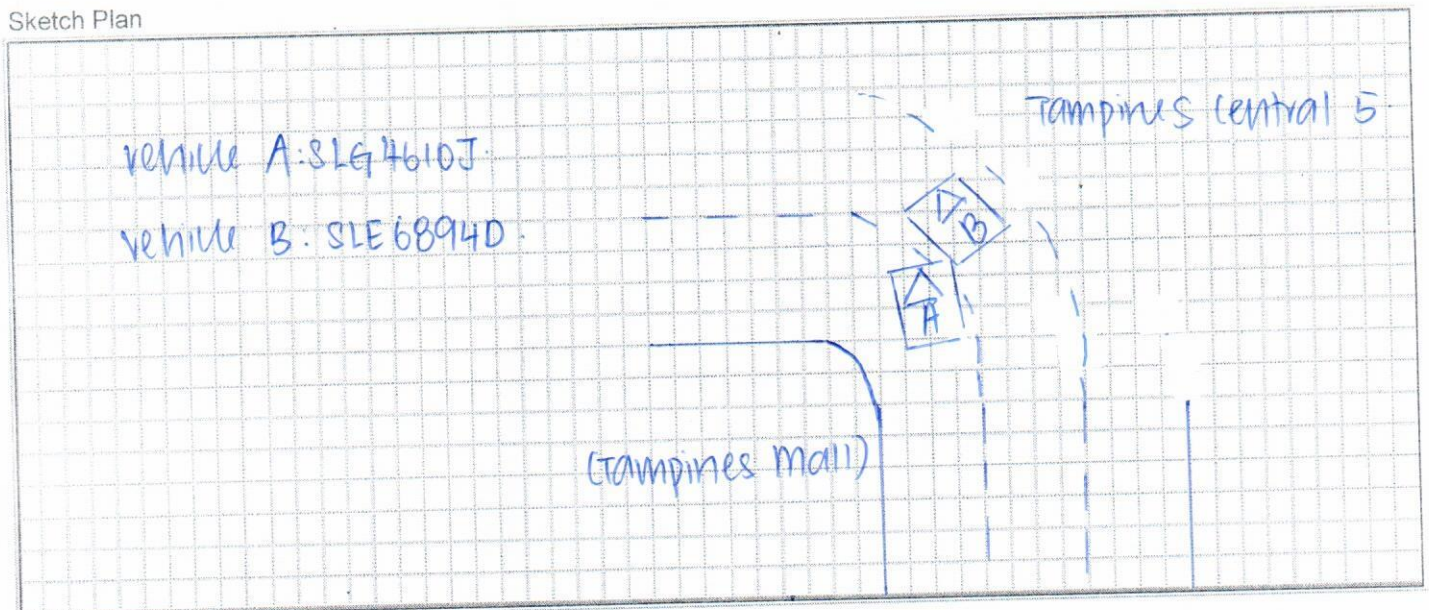 Sketch Plan
Tampines Central 5.
vehicle A: SLG4610J.
vehicle B: SLE6894D.
B
A
(Tampines Mall)